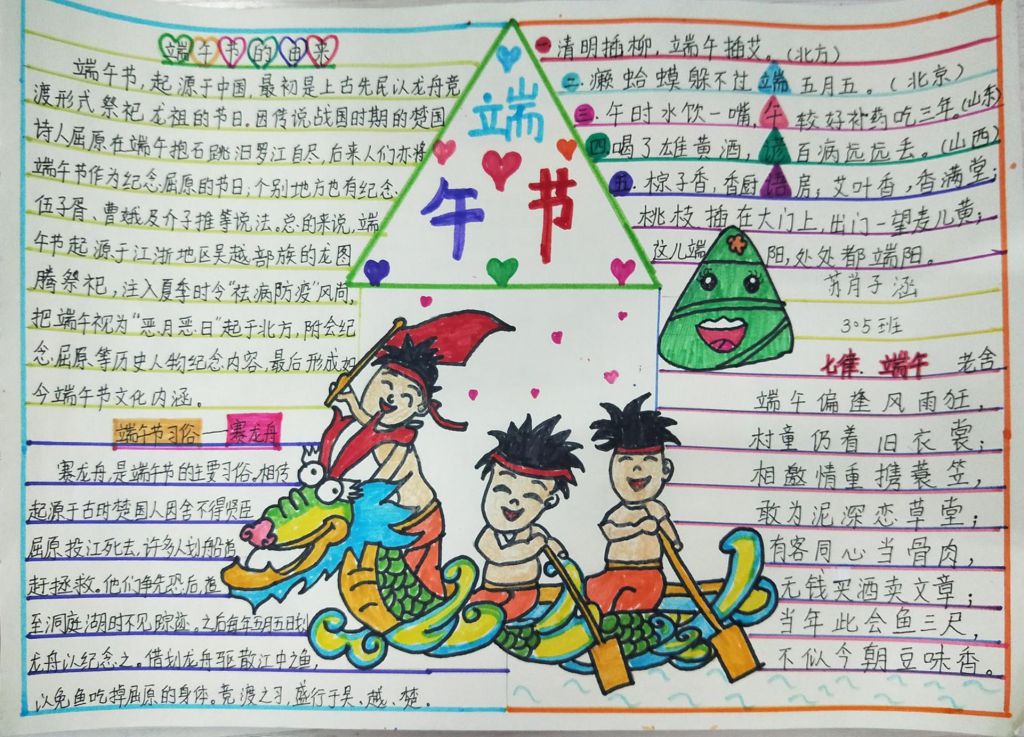 端午节的由来
端午节,起源于中国,最初是上古先民以龙舟竞
渡形式祭祀龙祖的节日。因传说战国时期的楚国
诗人屈原在端午抱石跳汨罗江自尽,后来人们亦将
端午节作为纪念屈原的节日;个别地方也有纪念
伍子胥、曹娥及介子推等说法。总的来说,端
午节起源于江浙地区吴越部族的龙图
腾祭祀,注入夏季时令“祛病防疫”风尚,
把端午视为“恶月恶日”起于北方,附会纪
念屈原等历史人物纪念内容,最后形成如
今端午节文化内涵。
端午节习俗——赛龙舟
赛龙舟,是端午节的主要习俗。相传
起源于古时楚国人因舍不得贤臣
屈原投江死去,许多人划船追
赶拯救。他们争先恐后,追
至洞庭湖时不见踪迹。之后每年五月五日划
龙舟以纪念之。借划龙舟驱散江中之鱼,
以免鱼吃掉屈原的身体。竞渡之习,盛行于吴、越、楚。
端
午节
端午谚语
一清明插柳,端午插艾。(北方)
二、癞蛤蟆躲不过五月五。(北京)
三、午时水饮一嘴,较好补药吃三年。(山东)
四喝了雄黄酒,百病远远丢。(山西)
五、棕子香,香厨房;艾叶香,香满堂;
桃枝插在大门上,出门一望麦儿黄;
这儿端阳,处处都端阳。
苏肖子涵
305班
七隼·端午 老舍
端午偏逢风雨狂,
村童仍着旧衣裳;
相邀情重携蓑笠,
敢为泥深恋草堂;
有客同心当骨肉,
无钱买酒卖文章;
当年此会鱼三尺,
不似今朝豆味香。